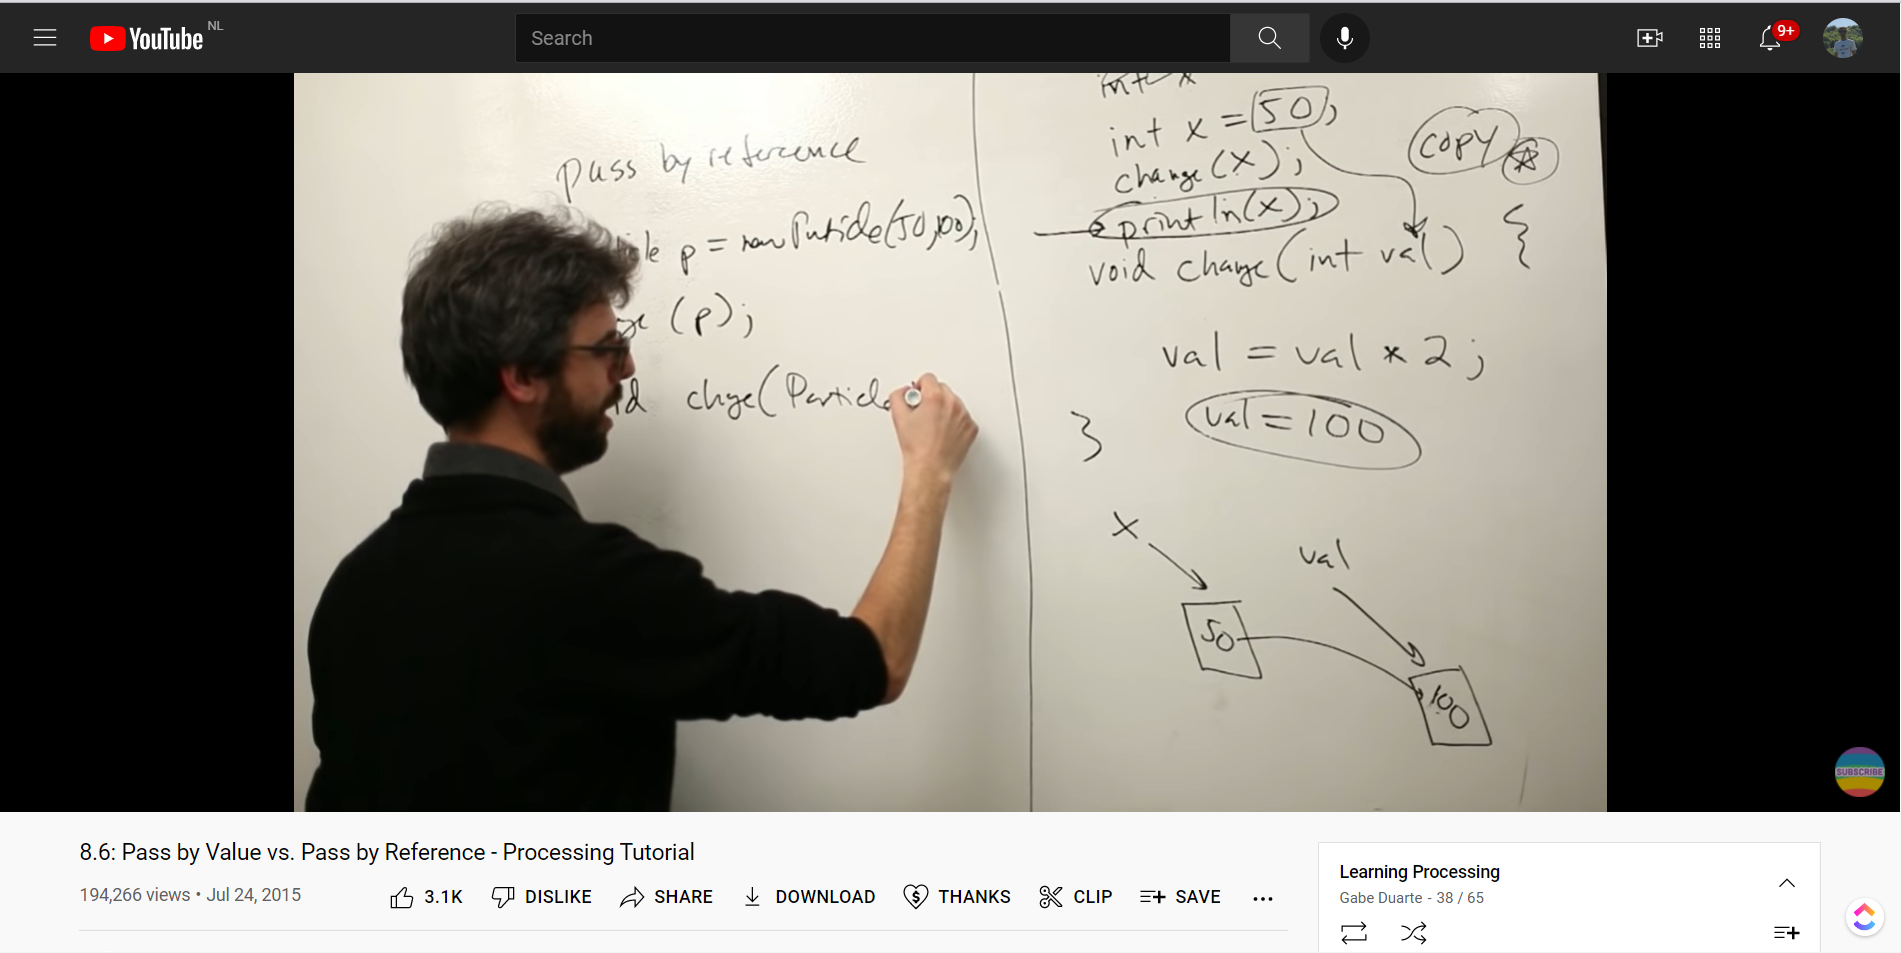 YouTube NL
Search
9+
pass by reference
p = new Particle(50,100);
(p);
chge(Particle
int x
int x = 50;
change(x);
println(x);
void change(int val) {
val = val * 2;
val = 100
}
COPY
x
val
50
100
SUBSCRIBE
8.6: Pass by Value vs. Pass by Reference - Processing Tutorial
194,266 views • Jul 24, 2015
3.1K DISLIKE SHARE DOWNLOAD THANKS CLIP SAVE ...
Learning Processing
Gabe Duarte - 38 / 65